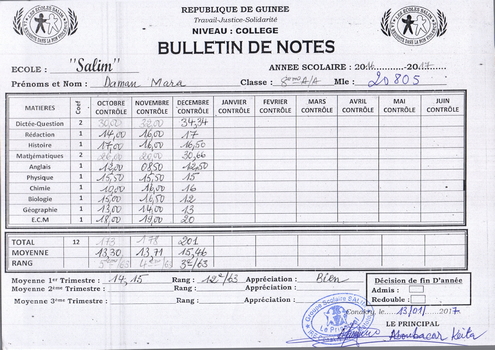 REPUBLIQUE DE GUINEE
Travail-Justice-Solidarité
NIVEAU : COLLEGE
BULLETIN DE NOTES
ECOLE : "Salim" ANNEE SCOLAIRE : 2016 ....-2017
Prénoms et Nom : Daman Mara Classe : 8eme A/A Mle : 20805
MATIERES Coef OCTOBRE CONTRÔLE NOVEMBRE CONTRÔLE DECEMBRE CONTRÔLE JANVIER CONTRÔLE FEVRIER CONTRÔLE MARS CONTRÔLE AVRIL CONTRÔLE MAI CONTRÔLE JUIN CONTRÔLE
Dictée-Question 2 30,00 32,00 34,34
Rédaction 1 14,00 16,00 17
Histoire 1 17,00 16,00 16,50
Mathématiques 2 26,00 20,00 30,66
Anglais 1 12,00 08,50 12,50
Physique 1 15,50 15,50 15
Chimie 1 10,00 16,00 16
Biologie 1 15,00 16,50 12
Géographie 1 13,00 14,00 13
E.C.M 1 18,00 19,00 20
TOTAL 12 173 178 201
MOYENNE 13,30 13,71 15,46
RANG 5eme/63 4eme/63 3e/63
Moyenne 1er Trimestre : 14,15 Rang : 12e/63 Appréciation : Bien
Moyenne 2ème Trimestre : Rang : Appréciation :
Moyenne 3ème Trimestre : Rang : Appréciation :
Décision de fin d'Année
Admis :
Redouble :
Conakry, le 13/01/2017
LE PRINCIPAL
Aboubacar Keita